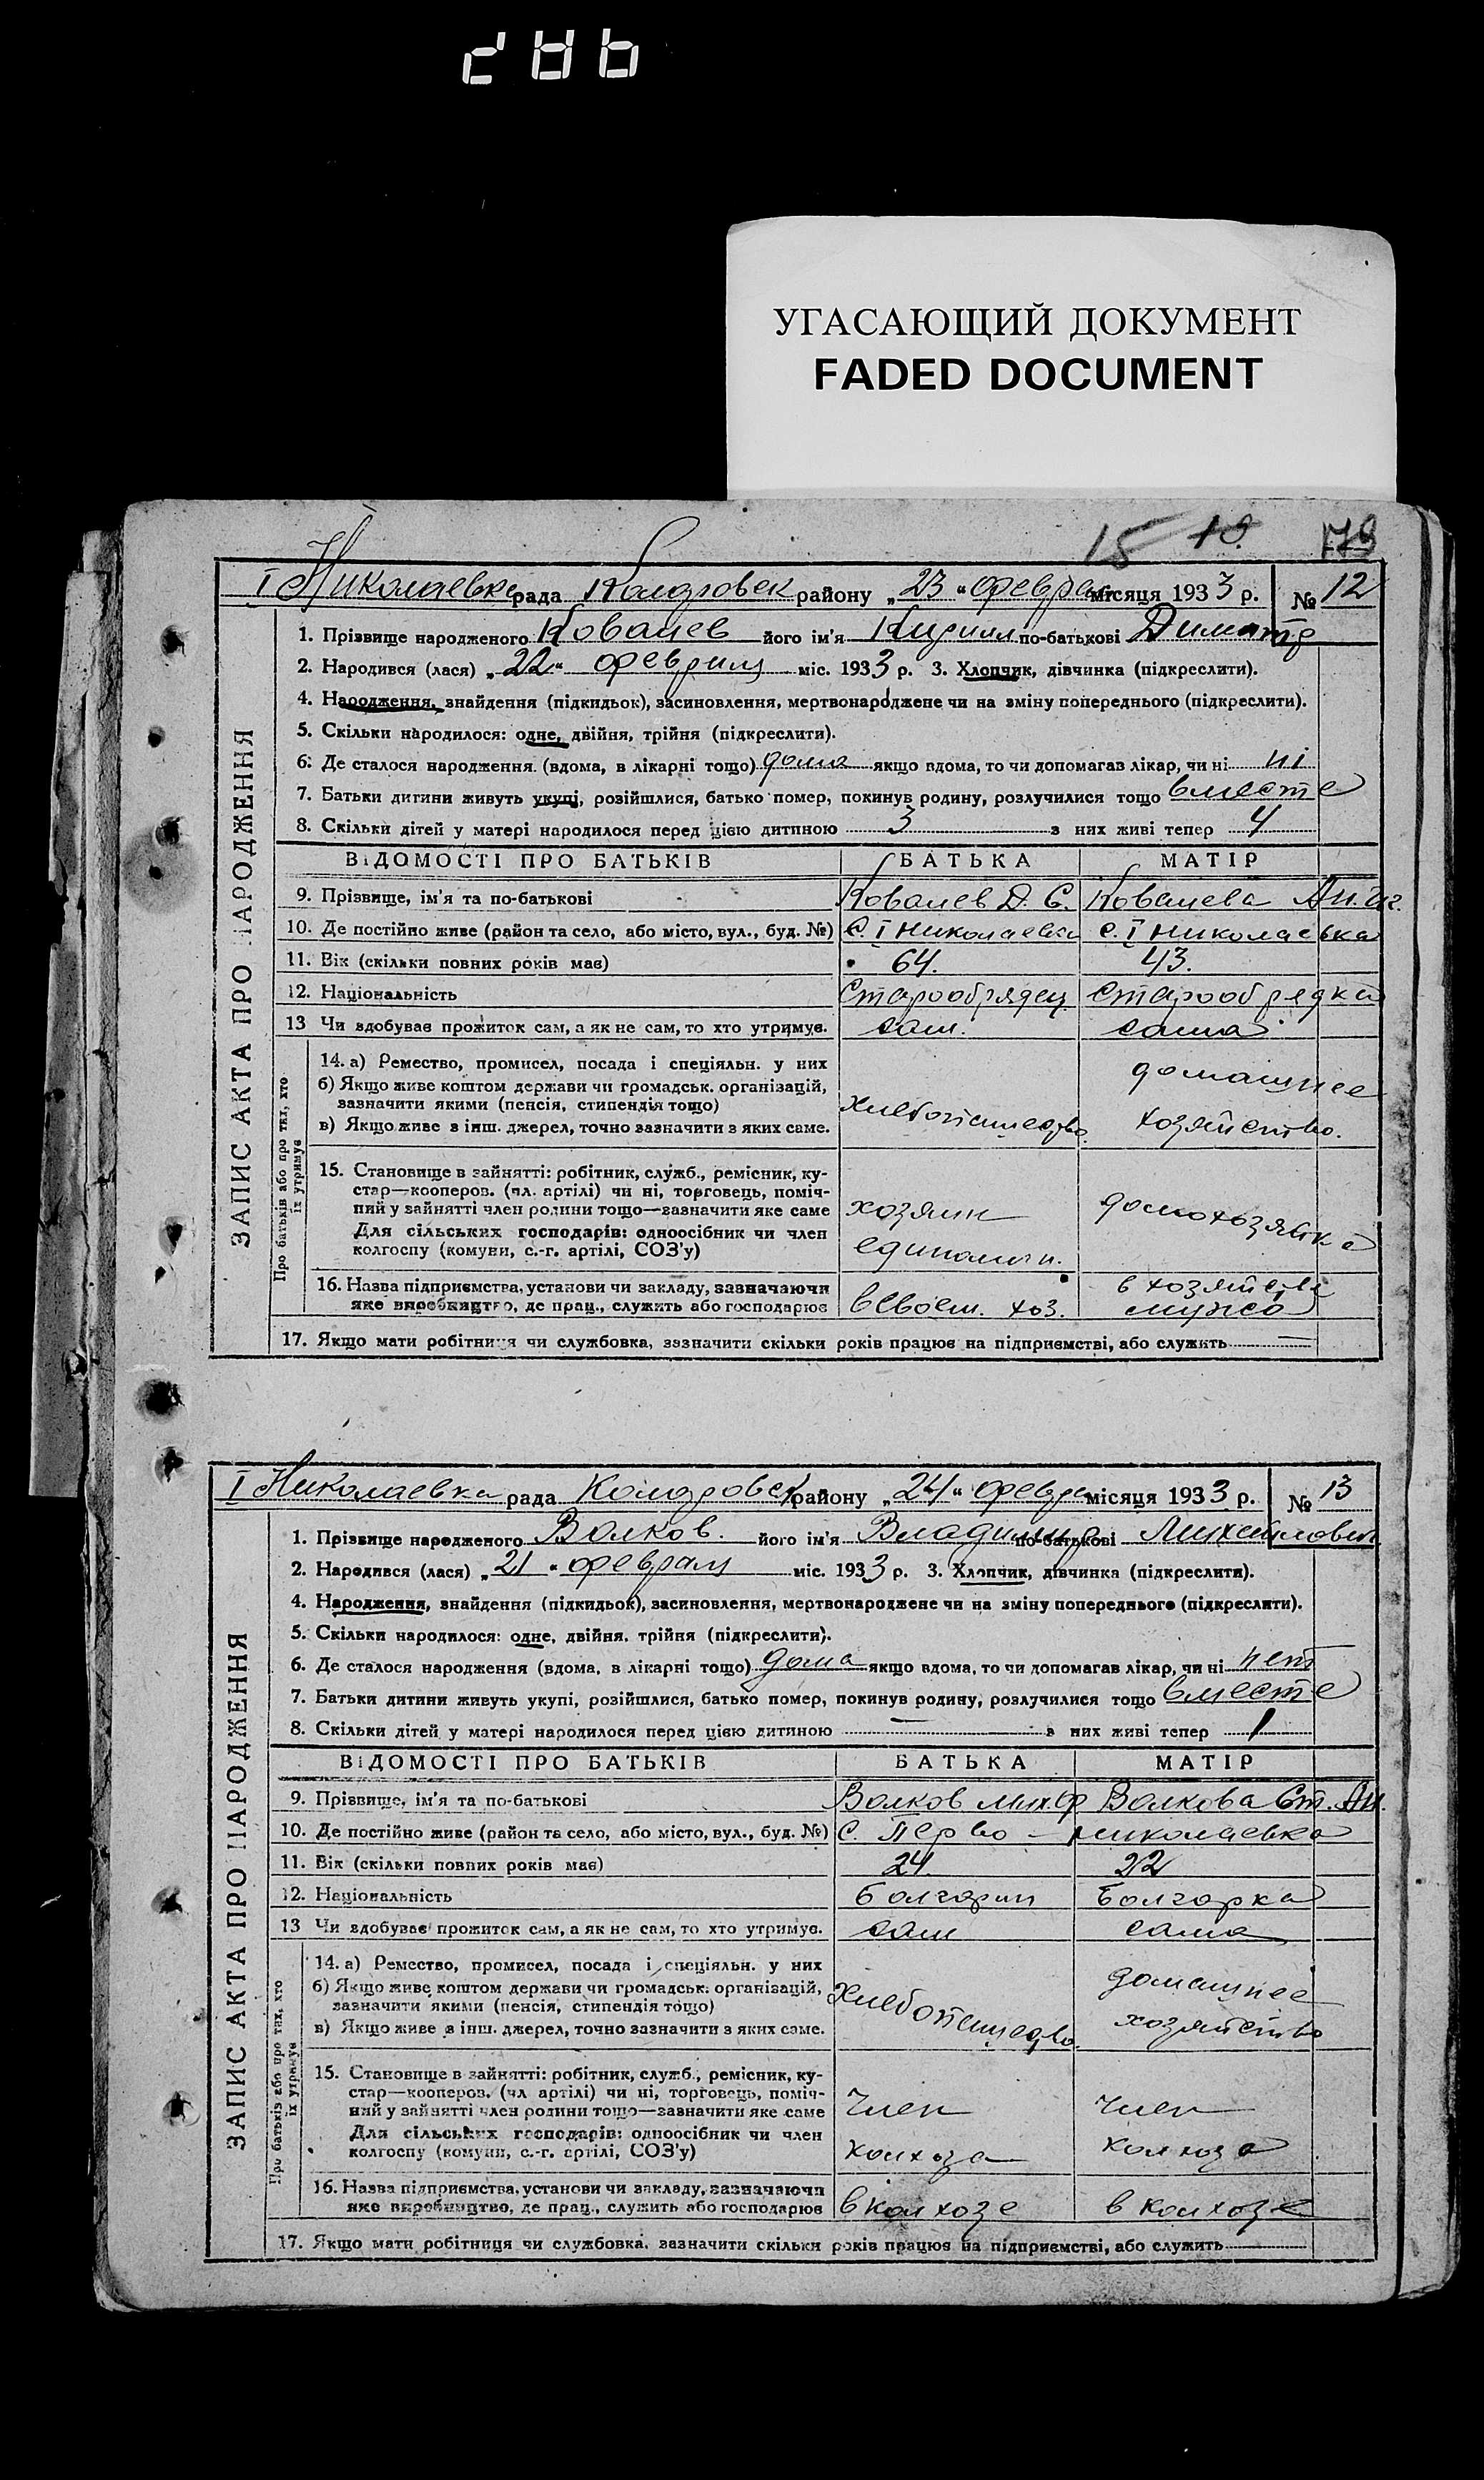 УГАСАЮЩИЙ ДОКУМЕНТ
FADED DOCUMENT
15 18 178
I Николаевка рада Коларовск району „23“ февра місяця 1933 р. № 12
ЗАПИС АКТА ПРО НАРОДЖЕННЯ
1. Прізвище народженого Ковалев його ім'я Кирилл по-батькові
2. Народився (лася) „22“ февраля міс. 1933 р. 3. Хлопчик, дівчинка (підкреслити).
4. Народження, знайдення (підкидьок), засиновлення, мертвонароджене чи на зміну попереднього (підкреслити).
5. Скільки народилося: одне, двійня, трійня (підкреслити).
6. Де сталося народження (вдома, в лікарні тощо) дома якщо вдома, то чи допомагав лікар, чи ні ні
7. Батьки дитини живуть укупі, розійшлися, батько помер, покинув родину, розлучилися тощо вместе
8. Скільки дітей у матері народилося перед цією дитиною 3 з них живі тепер 4
ВІДОМОСТІ ПРО БАТЬКІВ БАТЬКА МАТІР
9. Прізвище, ім'я та по-батькові Ковалев Д. С. Ковалева Ан.
10. Де постійно живе (район та село, або місто, вул., буд. №) С. I Николаевка С. I Николаевка
11. Вік (скільки повних років має) 64. 43.
12. Національність Старообрядец Старообрядка
13 Чи здобуває прожиток сам, а як не сам, то хто утримує. сам. сама
Про батьків або про тих, хто їх утримує
14. а) Ремество, промисел, посада і спеціяльн. у них
б) Якщо живе коштом держави чи громадськ. організацій,
зазначити якими (пенсія, стипендія тощо)
в) Якщо живе з інш. джерел, точно зазначити з яких саме.
хлебопашество домашнее хозяйство.
15. Становище в зайнятті: робітник, служб., ремісник, ку-
стар—кооперов. (чл. артілі) чи ні, торговець, поміч-
ний у зайнятті член родини тощо—зазначити яке саме
Для сільських господарів: одноосібник чи член
колгоспу (комуни, с.-г. артілі, СОЗ'у)
хозяин единолич. домохозяйка
16. Назва підприємства, установи чи закладу, зазначаючи
яке виробництво, де прац., служить або господарює
в своем. хоз. в хозяйстве мужа
17. Якщо мати робітниця чи службовка, зазначити скільки років працює на підприємстві, або служить —
I Николаевка рада Коларовск району „24“ февра місяця 1933 р. № 13
ЗАПИС АКТА ПРО НАРОДЖЕННЯ
1. Прізвище народженого Волков. його ім'я Владимир по-батькові Михайлович
2. Народився (лася) „21“ февраля міс. 1933 р. 3. Хлопчик, дівчинка (підкреслити).
4. Народження, знайдення (підкидьок), засиновлення, мертвонароджене чи на зміну попереднього (підкреслити).
5. Скільки народилося: одне, двійня, трійня (підкреслити).
6. Де сталося народження (вдома, в лікарні тощо) дома якщо вдома, то чи допомагав лікар, чи ні нет
7. Батьки дитини живуть укупі, розійшлися, батько помер, покинув родину, розлучилися тощо вместе
8. Скільки дітей у матері народилося перед цією дитиною — з них живі тепер 1
ВІДОМОСТІ ПРО БАТЬКІВ БАТЬКА МАТІР
9. Прізвище, ім'я та по-батькові Волков Мих. Ф Волкова Ст. Ан.
10. Де постійно живе (район та село, або місто, вул., буд. №) С. Перво - николаевка
11. Вік (скільки повних років має) 24 22
12. Національність Болгарин Болгарка
13 Чи здобуває прожиток сам, а як не сам, то хто утримує. сам сама
Про батьків або про тих, хто їх утримує
14. а) Ремество, промисел, посада і спеціяльн. у них
б) Якщо живе коштом держави чи громадськ. організацій,
зазначити якими (пенсія, стипендія тощо)
в) Якщо живе з інш. джерел, точно зазначити з яких саме.
Хлебопашество домашнее хозяйство
15. Становище в зайнятті: робітник, служб., ремісник, ку-
стар—кооперов. (чл артілі) чи ні, торговець, поміч-
ний у зайнятті член родини тощо—зазначити яке саме
Для сільських господарів: одноосібник чи член
колгоспу (комуни, с.-г. артілі, СОЗ'у)
Член колхоза Член колхоза
16. Назва підприємства, установи чи закладу, зазначаючи
яке виробництво, де прац., служить або господарює
в колхозе в колхозе
17. Якщо мати робітниця чи службовка, зазначити скільки років працює на підприємстві, або служить